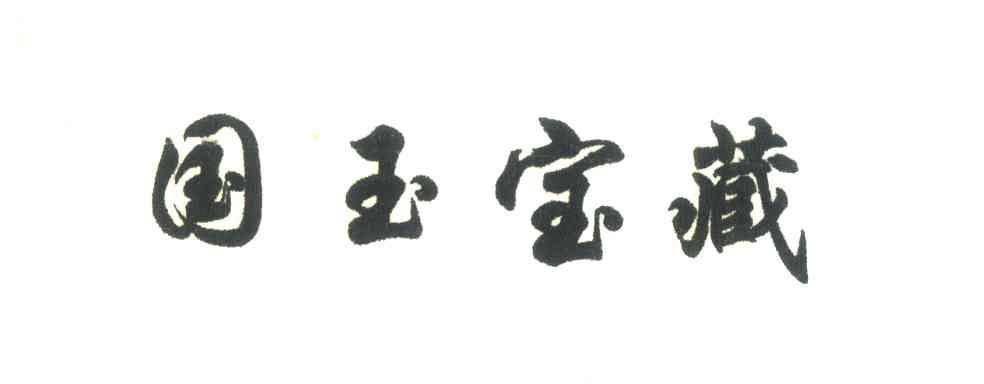 国玉宝藏